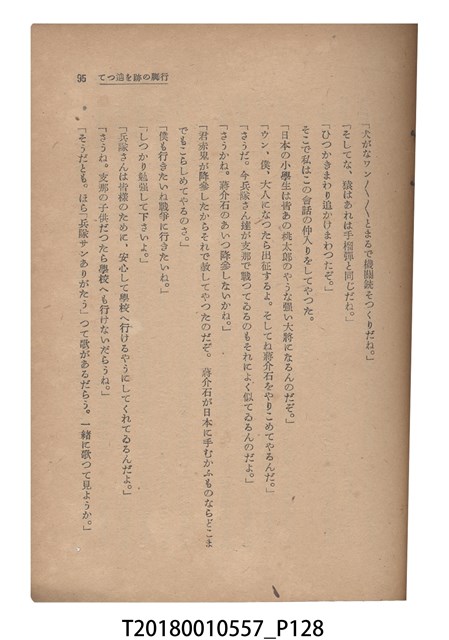 行脚の跡を追つて 95
「犬がなワン〳〵〳〵とまるで機關銃そつくりだね。」
「そしてな、猿はあれは手榴彈と同じだね。」
「ひつかきまわり追かけまわつたぞ。」
そこで私はこの會話の仲入りをしてやつた。
「日本の小學生は皆あの桃太郎のやうな强い大將になるんのだぞ。」
「ウン、僕、大人になつたら出征するよ。そしてね蔣介石をやりこめてやるんだ。」
「さうだ。今兵隊さん達が支那で戰つてゐるのもそれによく似てゐるんのだよ。」
「さうかね。蔣介石のあいつ降參しないかね。」
「君赤鬼が降參したからそれで赦してやつたのだぞ。蔣介石が日本に手むかふものならどこま
でもこらしめてやるのさ。」
「僕も行きたいね戰爭に行きたいね。」
「しつかり勉强して下さいよ。」
「兵隊さんは皆樣のために、安心して學校へ行けるやうにしてくれてゐるんだよ。」
「さうね。支那の子供だつたら學校へも行けないだらうね。」
「そうだとも。ほら「兵隊サンありがたう」つて歌があるだらう。一緖に歌つて見ようか。」
T20180010557_P128